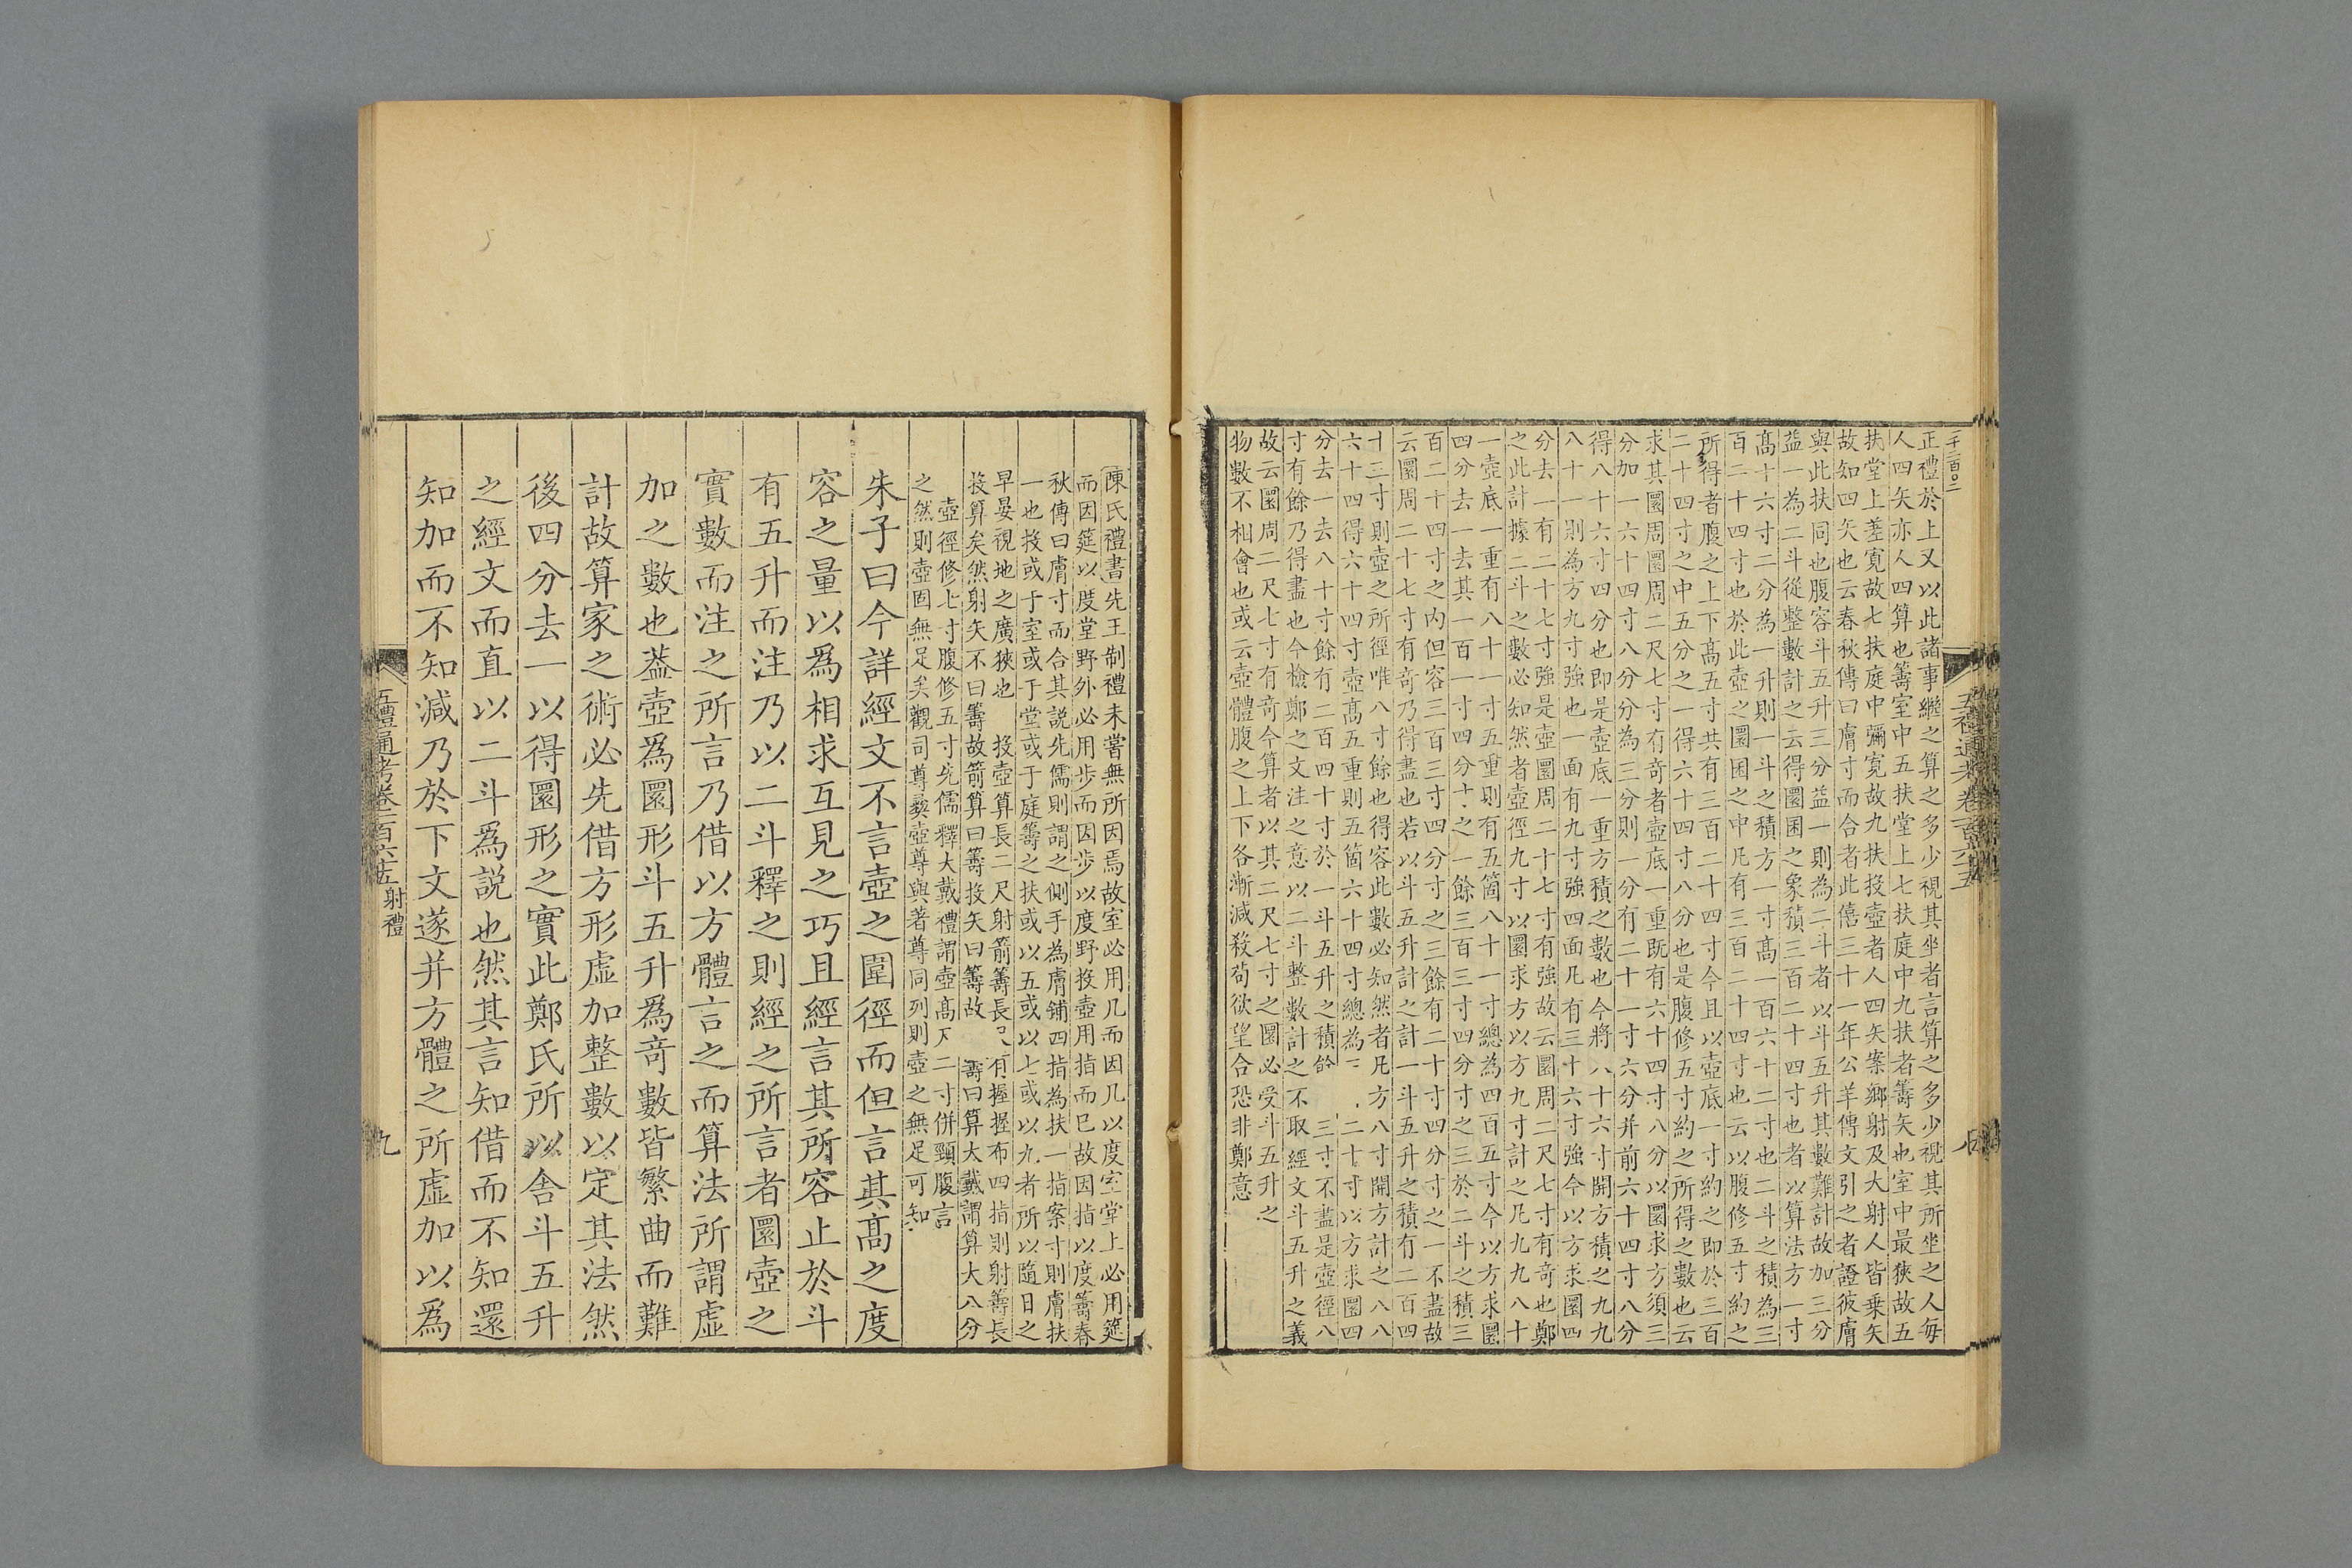 正禮於上又以此諸事繼之算之多少視其坐者言算之多少視其所坐之人每
人四矢亦人四算也籌室中五扶堂上七扶庭中九扶者籌矢也室中最狹故五
扶堂上差寛故七扶庭中彌寛故九扶投壺者人四矢案鄉射及大射人皆乗矢
故知四矢也云春秋傳曰膚寸而合者此僖三十一年公羊傳文引之者證彼膚
與此扶同也腹容斗五升三分益一則為二斗者以斗五升其數難計故加三分
益一為二斗從整數計之云得圜囷之象積三百二十四寸也者以算法方一寸
髙十六寸二分為一升則一斗之積方一寸髙一百六十二寸也二斗之積為三
百二十四寸也於此壺之圜囷之中凡有三百二十四寸也云以腹修五寸約之
所得者腹之上下髙五寸共有三百二十四寸今且以壺底一寸約之即於三百
二十四寸之中五分之一得六十四寸八分也是腹修五寸約之所得之數也云
求其圜周圜周二尺七寸有奇者壺底一重既有六十四寸八分以圜求方須三
分加一六十四寸八分分為三分則一分有二十一寸六分并前六十四寸八分
得八十六寸四分也即是壺底一重方積之數也今將八十六寸開方積之九九
八十一則為方九寸強也一面有九寸強四面凡有三十六寸強今以方求圜四
分去一有二十七寸強是壺圜周二十七寸有強故云圜周二尺七寸有奇也鄭
之此計據二斗之數必知然者壺徑九寸以圜求方以方九寸計之凡九九八十
一壺底一重有八十一寸五重則有五箇八十一寸總為四百五寸今以方求圜
四分去一去其一百一寸四分寸之一餘三百三寸四分寸之三於二斗之積三
百二十四寸之内但容三百三寸四分寸之三餘有二十寸四分寸之一不盡故
云圜周二十七寸有奇乃得盡也若以斗五升計之計一斗五升之積有二百四
十三寸則壺之所徑唯八寸餘也得容此數必知然者凡方八寸開方計之八八
六十四得六十四寸壺髙五重則五箇六十四寸總為二十寸以方求圜四
分去一去八十寸餘有二百四十寸於一斗五升之積餘三寸不盡是壺徑八
寸有餘乃得盡也今檢鄭之文注之意以二斗整數計之不取經文斗五升之義
故云圜周二尺七寸有奇今算者以其二尺七寸之圜必受斗五升之
物數不相會也或云壺體腹之上下各漸減殺茍欲望合恐非鄭意
陳氏禮書先王制禮未嘗無所因焉故室必用几而因几以度室堂上必用筵
而因筵以度堂野外必用步而因步以度野投壺用指而已故因指以度籌春
秋傳曰膚寸而合其說先儒則謂之側手為膚鋪四指為扶一指案寸則膚扶
一也投或于室或于堂或于庭籌之扶或以五或以七或以九者所以隨日之
早晏視地之廣狹也 投壺算長二尺射箭籌長尺有握握布四指則射籌長
投算矣然射矢不曰籌故箭算曰籌投矢曰籌故籌曰算大戴謂算大八分
壺徑修七寸腹修五寸先儒釋大戴禮謂壺髙尺二寸併頸腹言
之然則壺固無足矣觀司尊彛壺尊與著尊同列則壺之無足可知
朱子曰今詳經文不言壺之圍徑而但言其髙之度
容之量以爲相求互見之巧且經言其所容止於斗
有五升而注乃以二斗釋之則經之所言者圜壺之
實數而注之所言乃借以方體言之而算法所謂虛
加之數也葢壺爲圜形斗五升爲奇數皆繁曲而難
計故算家之術必先借方形虛加整數以定其法然
後四分去一以得圜形之實此鄭氏所以舍斗五升
之經文而直以二斗爲説也然其言知借而不知還
知加而不知減乃於下文遂并方體之所虛加以爲
五禮通考卷一百六十五 射禮
九